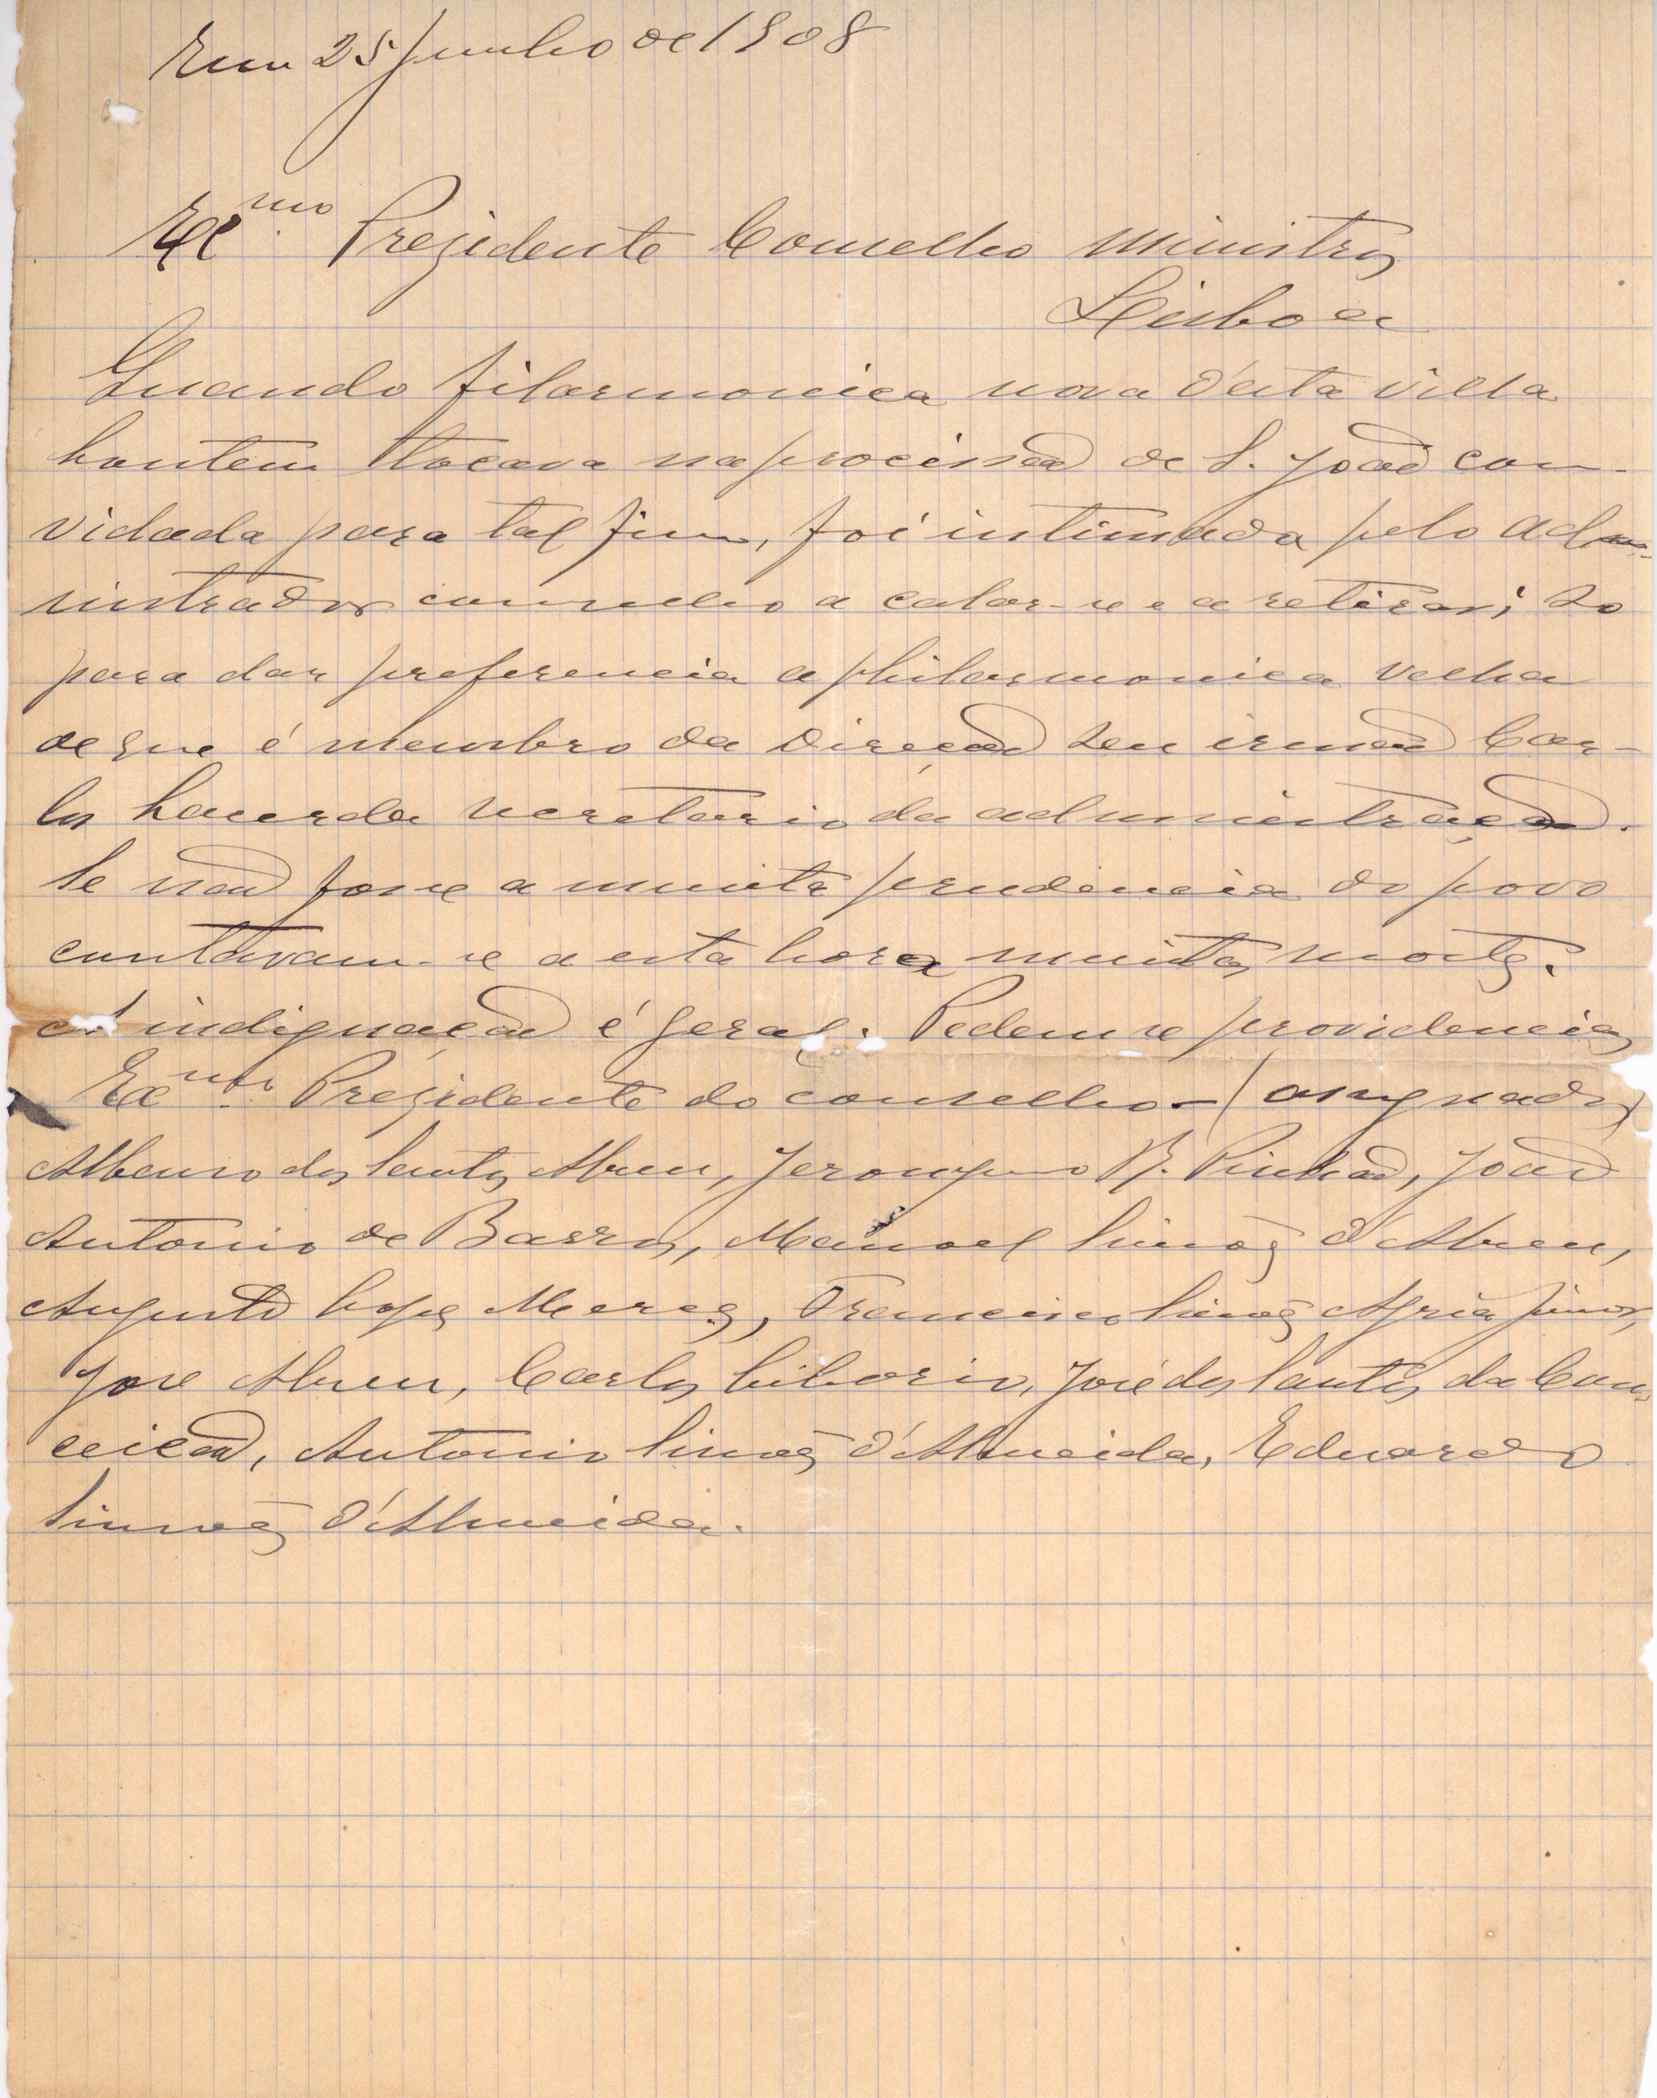 Em 25 Junho de 1908
Exmo. Prezidente Concelho Ministros
Lisboa
Quando filarmonica nova d'esta villa
hontem tocava na procissão de S. João con-
vidada para tal fim, foi intimada pelo adm-
nistrador concelho a calar-se e a retirar; so
para dar preferencia a philarmonica velha
de que é membro da direcção seu irmão Car-
los Lacerda secretario da administração.
Se não fosse a muita prudencia do povo
contavam-se a esta hora muitas mortes.
A indignação é geral. Pedem-se providencias
Exmo. Prezidente do conselho - (assignados)
Albano dos Santos Abreu, Jeronymo R. Pinhão, João
Antonio de Barros, Manoel Simões d'Abreu,
Augusto Lopes Meires, Francisco Simões Agria Junior,
Jose Abreu, Carlos Liborio, José dos Santos da Con-
ceicão, Antonio Simões d'Almeida, Eduardo
Simões d'Almeida.